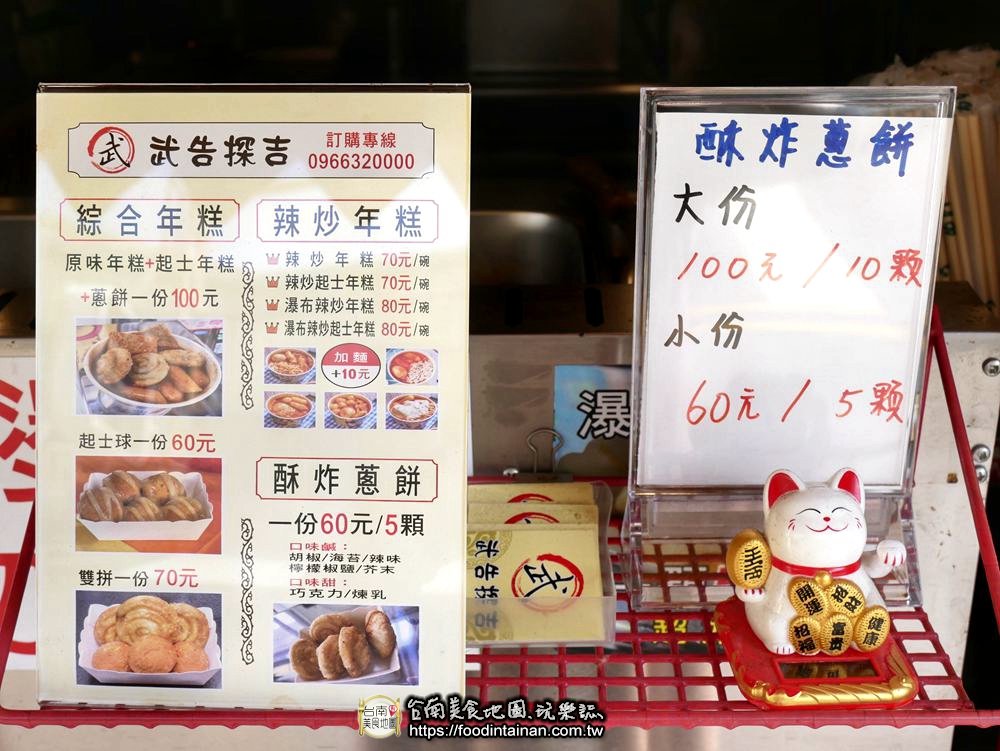 武 武告探吉
訂購專線
0966320000
綜合年糕
原味年糕+起士年糕
+蔥餅一份100元
起士球一份60元
雙拼一份70元
辣炒年糕
辣炒年糕 70元/碗
辣炒起士年糕 70元/碗
瀑布辣炒年糕 80元/碗
瀑布辣炒起士年糕 80元/碗
加麵
+10元
酥炸蔥餅
一份60元/5顆
口味鹹：
胡椒/海苔/辣味
檸檬椒鹽/芥末
口味甜：
巧克力/煉乳
酥炸蔥餅
大份
100元/10顆
小份
60元/5顆
瀑
武告探吉
武
開運
招福
富貴
健康
台南美食地圖
台南美食地圖.玩樂誌
https://foodintainan.com.tw